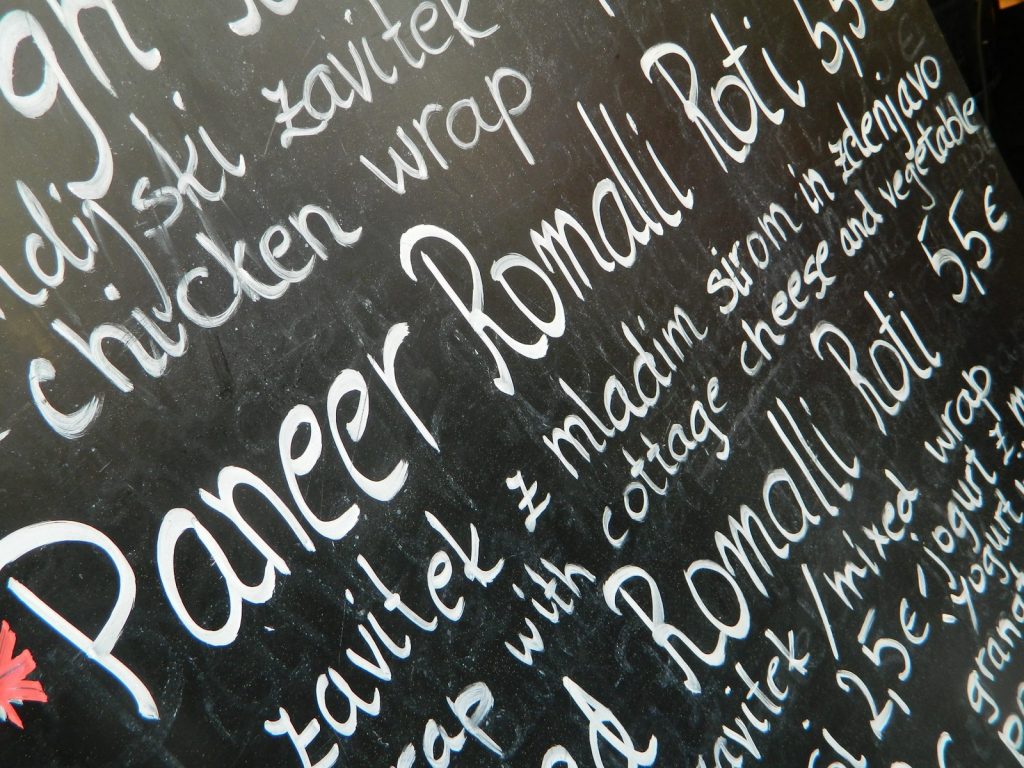 zavitek
chicken wrap
Paneer Romalli Roti 5,5€
zavitek z mladim sirom in zelenjavo
wrap with cottage cheese and vegetable
Romalli Roti 5,5€
zavitek/mixed wrap
2,5€ jogurt z
yogurt